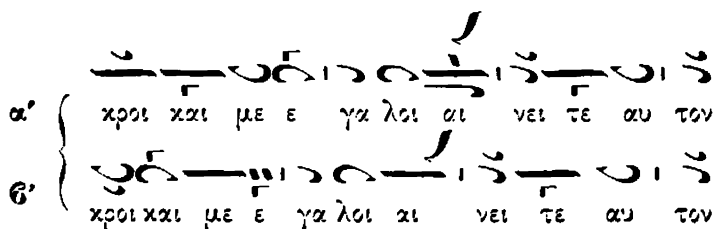 α' κροι και με ε γα λοι αι νει τε αυ τον
ϐ' κροι και με ε γα λοι αι νει τε αυ τον